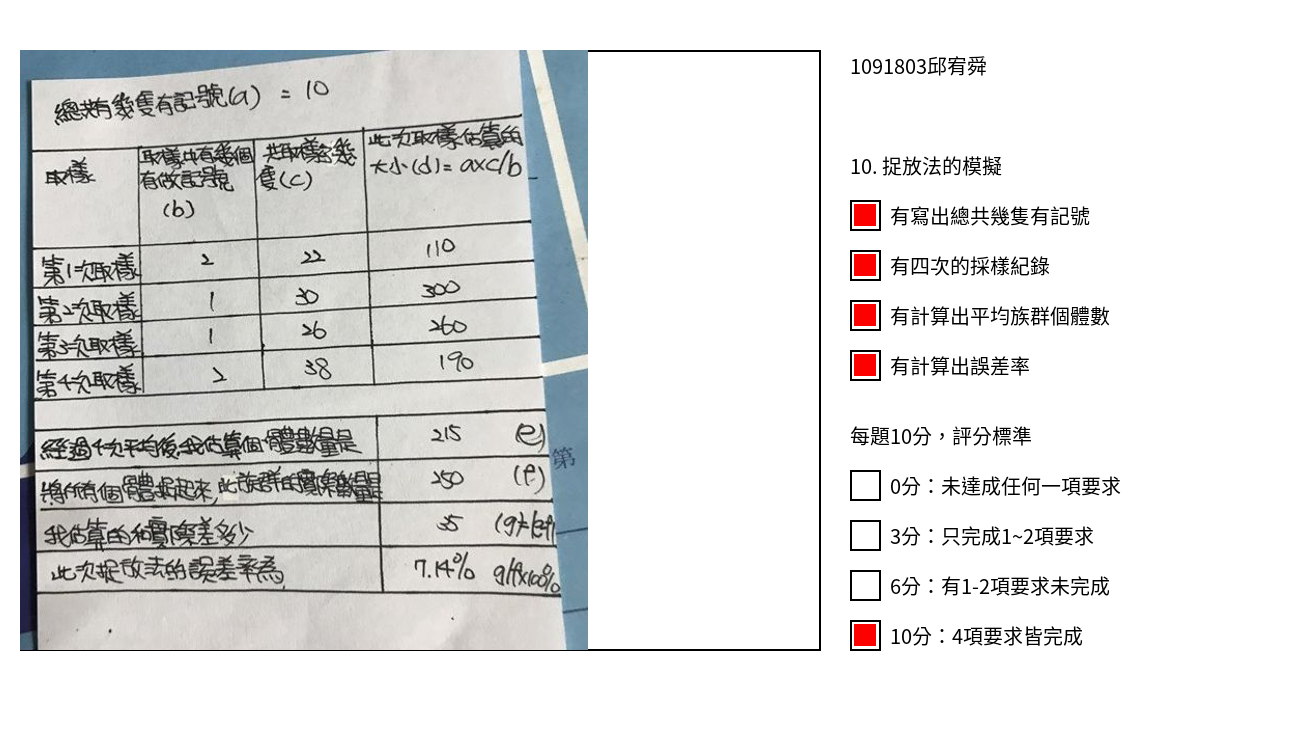 總共有幾隻有記號(a) = 10
取樣
取樣中有幾個有做記號(b)
共取樣了幾隻(c)
此次取樣估算的大小(d)= axc/b
第1次取樣 2 22 110
第2次取樣 1 30 300
第3次取樣 1 26 260
第4次取樣 2 38 190
經過4次平均後,我估算個體數量是 215 (e)
將所有個體捉起來,此族群的實際數量是 250 (f)
我估算的和實際差多少 35 (g)=|e-f|
此次捉放法的誤差率為 7.14% g/f×100%
第
1091803邱宥舜
10. 捉放法的模擬
有寫出總共幾隻有記號
有四次的採樣紀錄
有計算出平均族群個體數
有計算出誤差率
每題10分，評分標準
0分：未達成任何一項要求
3分：只完成1~2項要求
6分：有1-2項要求未完成
10分：4項要求皆完成